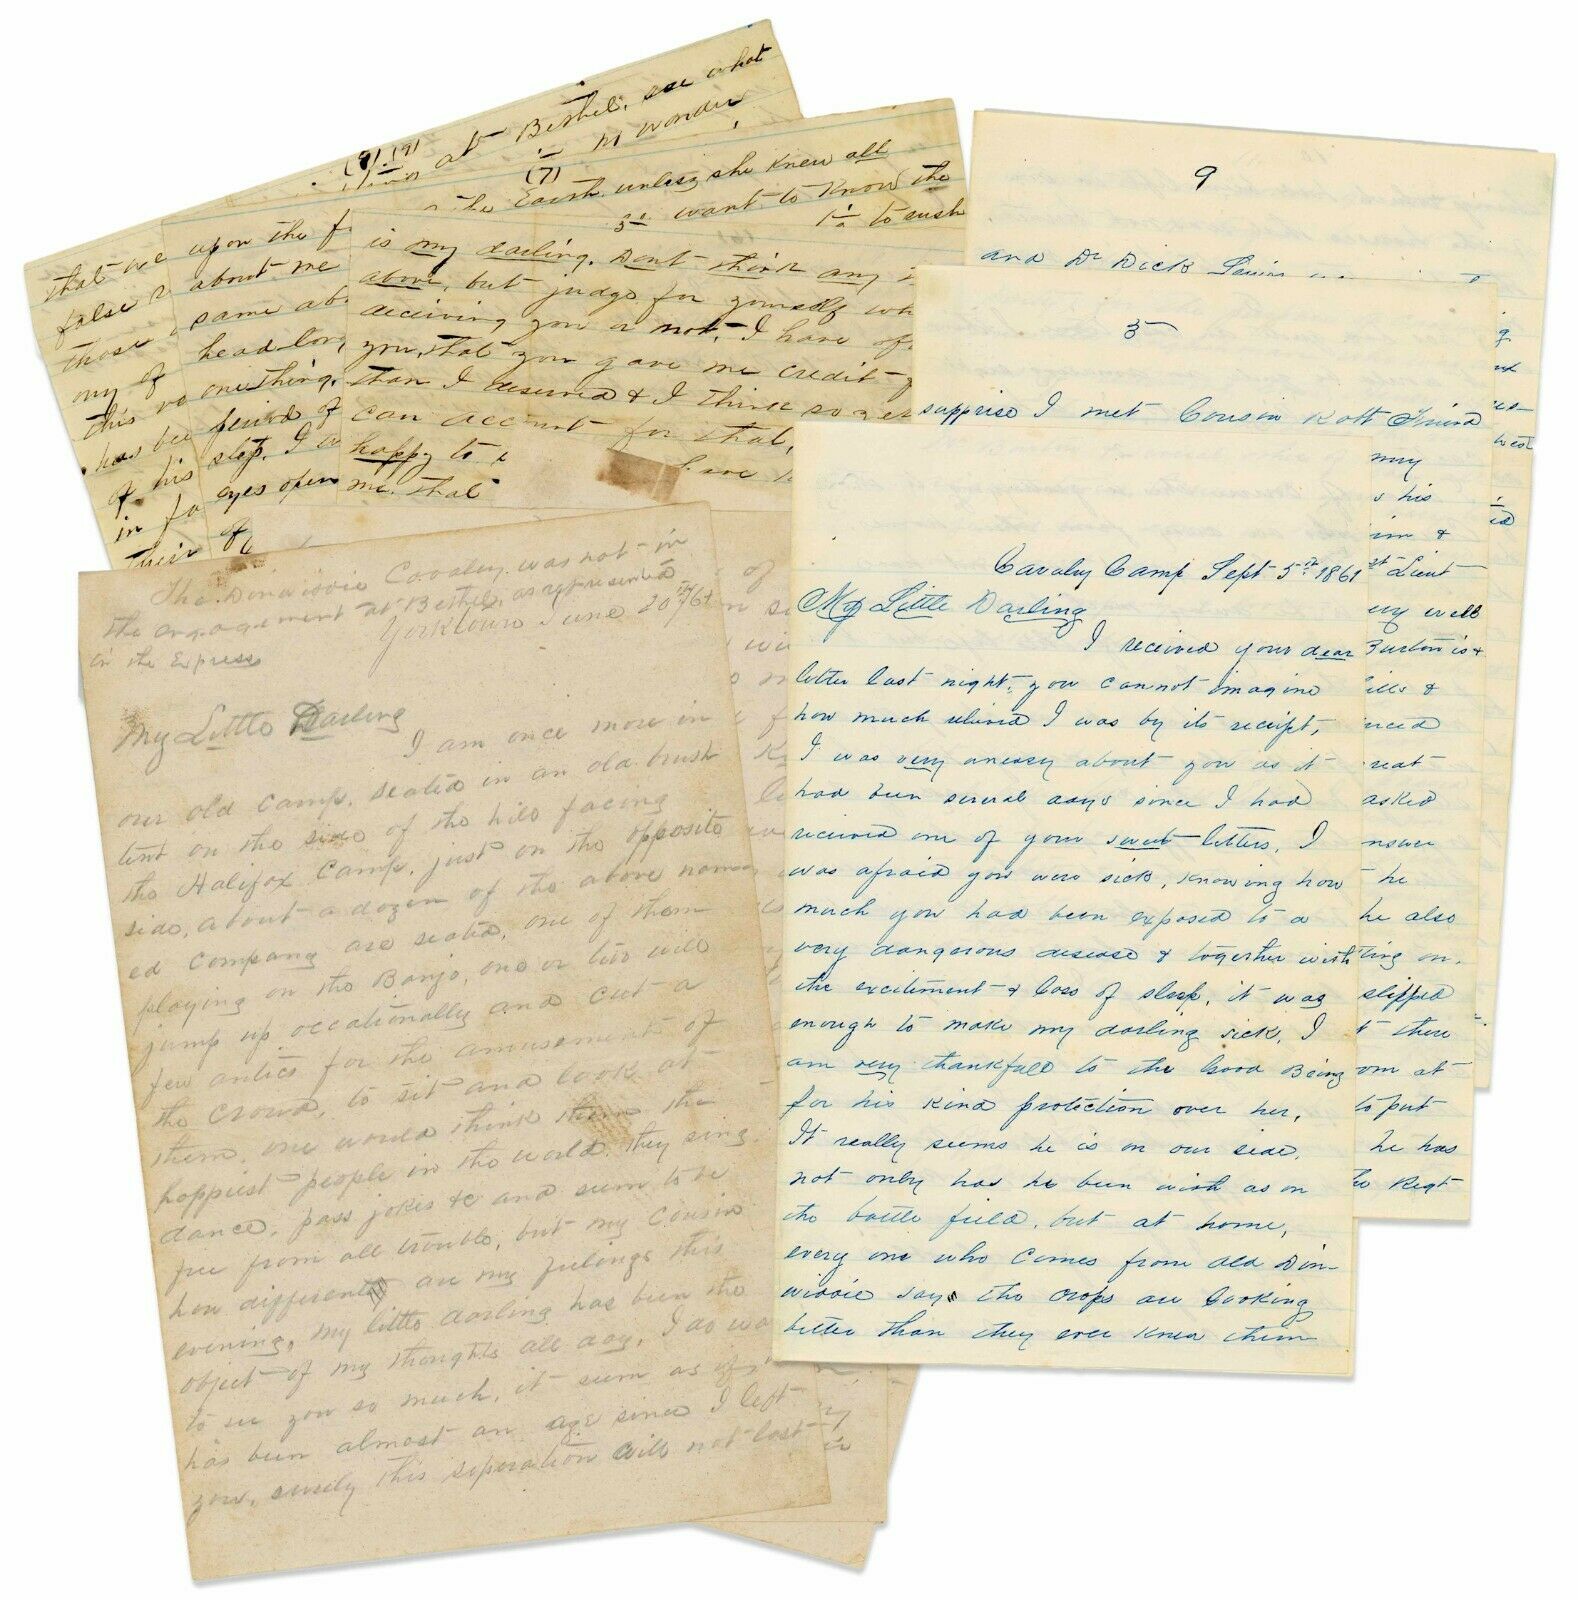 (9) (9)
at Bethel, see what
(7) no wonder
the Earth unless she knew all
3d want to know the
to rush
that we
false
those
any of
this
has bee
of his
in fa
their
upon the f
about me
same ab
head long
one thing.
period of
slep. I w
eyes open
of
is my darling. Dont think any
above, but judge for yourself wh
deceiving you or not, I have of
you, that you gave me credit
than I deserved & I think so yet
can account for that,
happy to
me. that
have
9
and Dr Dick
5
supprise I met Cousin Robt Friend
my
his
him &
st Lieut
very well
Burton is &
ills &
nced
reat
asked
nswer
he
he also
ting on.
slipped
there
om at
to put
he has
the Regt
The Dinwiddie Cavalry was not in
the engagement at Bethel, as represented
in the Express
Yorktown June 20th /61
My Little Darling
I am once more in
our old camp, seated in an old brush
tent on the side of the hill facing
the Halifax Camp, just on the opposite
side, about a dozen of the above nam
ed company are seated, one of them
playing on the Banjo, one or two will
jump up occationally and cut a
few antics for the amusements of
the crowd, to sit and look at
them, one would think them the
happiest people in the world. they sing
dance, pass jokes &c and seem to be
free from all trouble, but my Cousin
how different are my feelings this
evening, my little darling has been the
object of my thoughts all day, I do wa
to see you so much, it seem as if
has been almost an age since I left
you, surely this seperation will not last
Cavalry Camp Sept 5th 1861
My Little Darling
I received your dear
letter last night, you cannot imagine
how much relieved I was by its receipt,
I was very uneasy about you as it
had been several days since I had
received one of your sweet letters, I
was afraid you were sick, knowing how
much you had been exposed to a
very dangerous desease & together with
the excitement & loss of sleep, it was
enough to make my darling sick, I
am very thankfull to the Good Being
for his kind protection over her,
It really seems he is on our side,
not only has he been with us on
the battle field, but at home,
every one who comes from old Din-
widdie says the crops are looking
better than they ever knew them